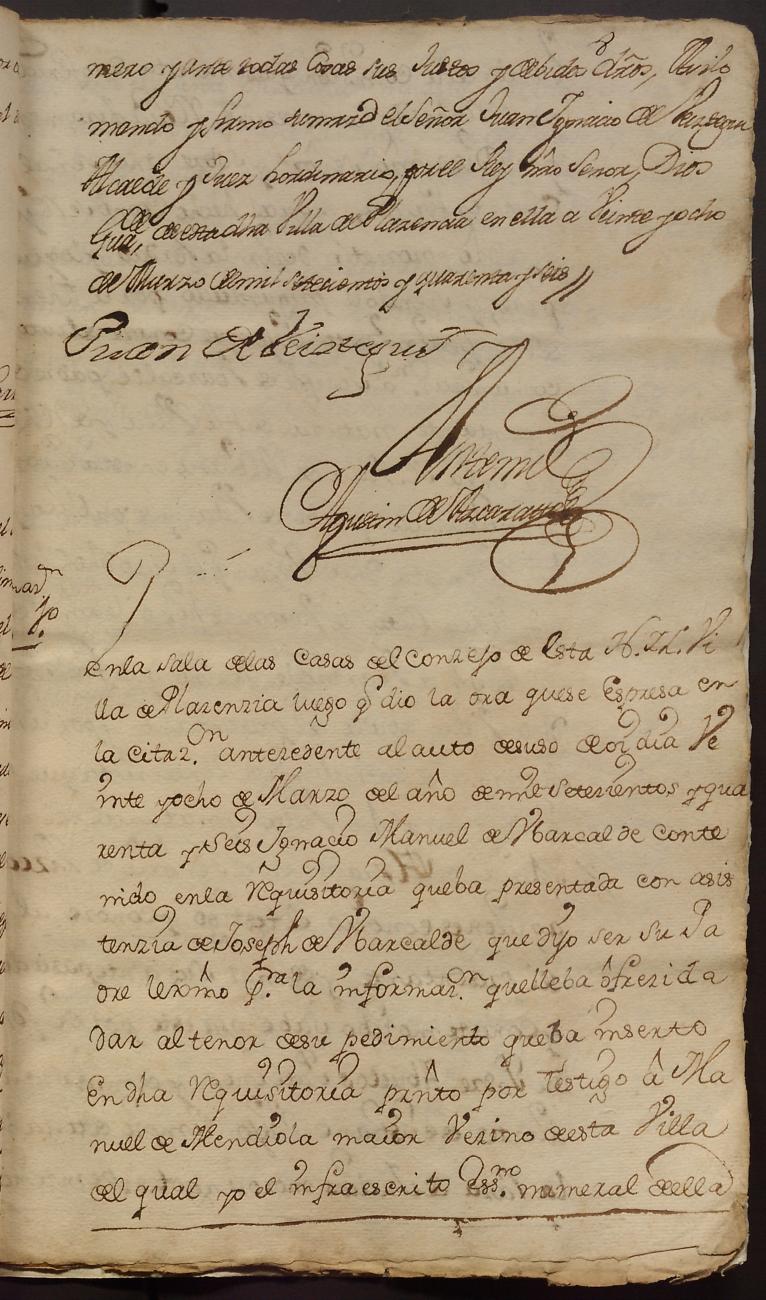 mero y ante todas Cosas sus Justos y debidos dros, Asi lo
mando y firmo su mrd el Señor Juan Ignacio de
Alcalde y Juez hordinario, por el Rey nro Señor, Dios
le Gue, de esta dha Villa de Plazencia en ella a Veinte y ocho
de Marzo de mil setecientos y quarenta y seis //
Juan de
Antemi
Agustin de
En la Sala de las Casas del Conzejo de Esta N. Y L. Vi
lla de Plazenzia luego q dio la ora que se Espresa en
la citaz.on antezedente al auto de suso de oi dia Ve
inte y ocho de Marzo del año de mil Setezientos y qua
renta y Seis Ignacio Manuel de Marcalde conte
nido en la Requisitoria que ba presentada con asis
tenzia de Joseph de Marcalde que dijo ser su Pa
dre lexmo p.ra la informaz.on que lleba ofrezida
dar al tenor de su pedimiento que ba inserto
En dha Requisitoria prnto por Testigo a Ma
nuel de Mendiola maior Vezino de esta Villa
del qual yo el infraescrito Ess.no numeral de ella